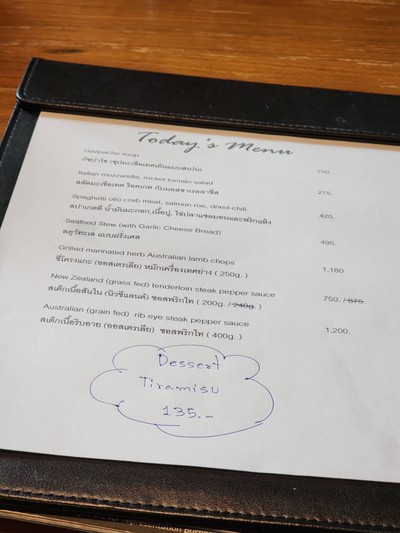 Today's Menu
Gazpacho soup
กัซปาโช (ซุปมะเขือเทศเย็นแบบสเปน) 150.
Italian mozzarella, rocket tomato salad
สลัดมะเขือเทศ ร็อคเกต กับมอสซาเรลลาชีส 275.
Spaghetti olio crab meat, salmon roe, dried-chili
สปาเกตตี น้ำมันมะกอก เนื้อปู, ไข่ปลาแซลมอนและพริกแห้ง 420.
Seafood Stew (with Garlic Cheese Bread)
สตูว์ทะเล แบบฝรั่งเศส 495.
Grilled marinated herb Australian lamb chops
ซี่โครงแกะ (ออสเตรเลีย) หมักเครื่องเทศย่าง ( 250g. ) 1,180
New Zealand (grass fed) tenderloin steak pepper sauce
สเต็กเนื้อสันใน (นิวซีแลนด์) ซอสพริกไท ( 200g. / 240g. ) 750. / 875.
Australian (grain fed) rib eye steak pepper sauce
สเต็กเนื้อริบอาย (ออสเตรเลีย) ซอสพริกไท ( 400g. ) 1,200.
Dessert
Tiramisu
135.-